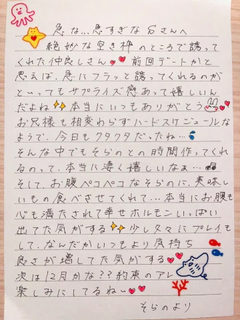 急な…急すぎなGさんへ
絶妙な空き枠のところで誘って
くれた仲良しさん 前回デートかと
思えば、急にフラッと誘ってくれるのが
といってもサプライズ感あって嬉しいん
だよね 本当にいつもありがとう
お兄様も相変わらずハードスケジュールな
ようで、今日もフタフタだったね…
そんな中でもそらのとの時間作ってくれ
るのって、本当に凄く嬉しいなぁ…
そして、お腹ペコペコなそらのに、美味し
いもの食べさせてくれて…本当にお腹も
心も満たされて幸せホルモンいっぱい
出てた気がする 少し久々にプレイも
して、なんだかいつもより気持ち
良さが増してた気がする
次は12月かな?? 約束のアレ
楽しみにしてるね〜
そらのより